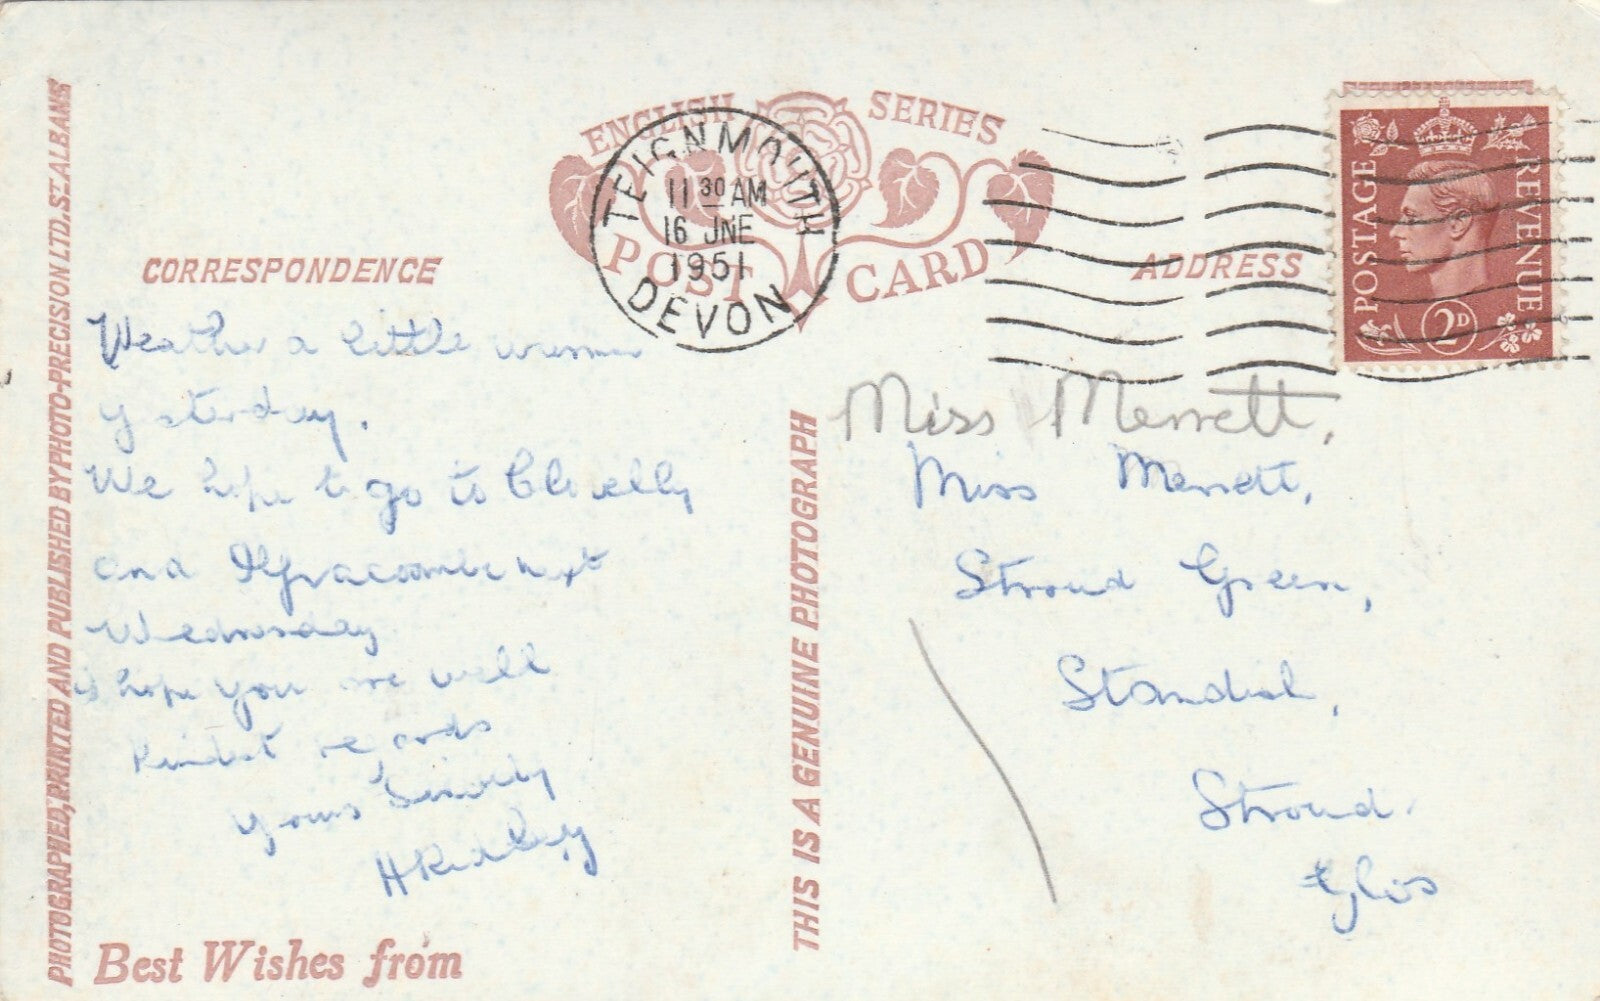 PHOTOGRAPHED, PRINTED AND PUBLISHED BY PHOTO-PRECISION LTD. ST. ALBANS
ENGLISH SERIES
POST CARD
TEIGNMOUTH
11 30 AM
16 JNE
1951
DEVON
POSTAGE
REVENUE
2D
CORRESPONDENCE
Weather a little warmer
yesterday.
We hope to go to Clovelly
and Ilfracombe next
Wednesday
hope you are well
Kindest regards
Yours Sincerely
H Ridley
Best Wishes from
THIS IS A GENUINE PHOTOGRAPH
ADDRESS
Miss Merrett,
Miss Merrett,
Stroud Green,
Standish,
Stroud.
Glos